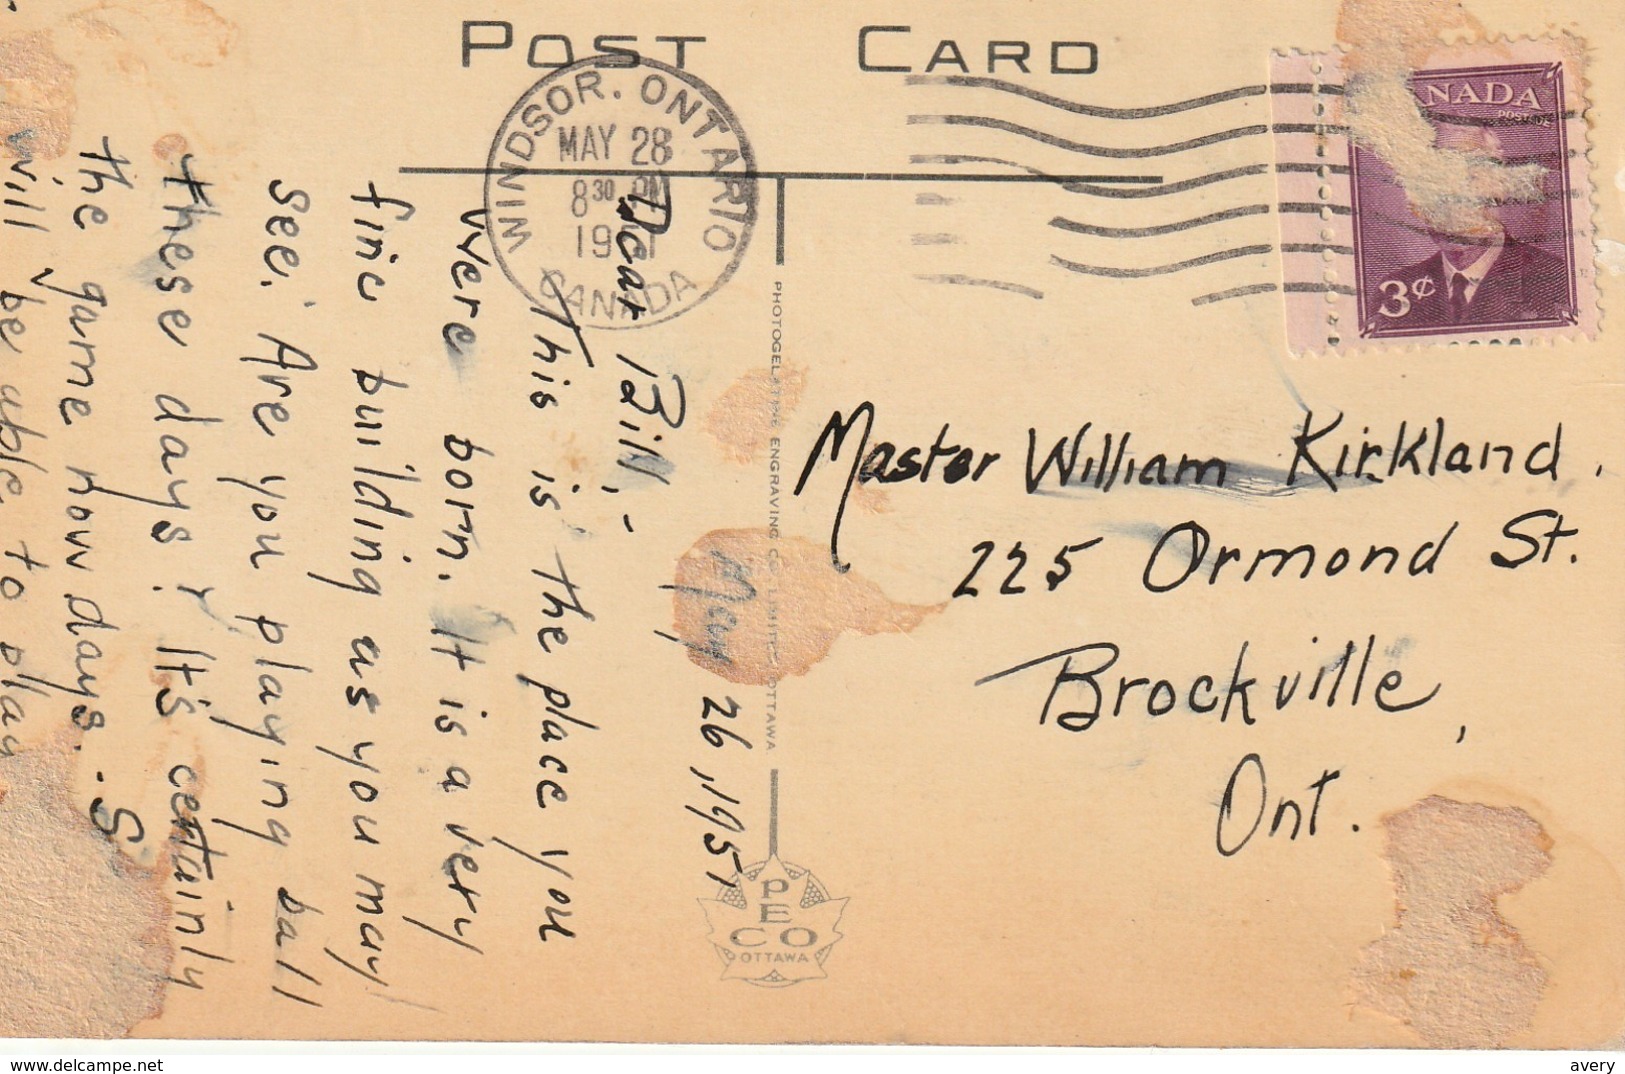 POST CARD
WINDSOR. ONTARIO
MAY 28
8 30 PM
CANADA
CANADA
POSTAGE
3¢
May 26, 1951
Dear Bill,-
This is the place you
were born. It is a very
fine building as you may
see. Are you playing ball
these days? It's certainly
the game now days. -
will be able to play
Master William Kirkland.
225 Ormond St.
Brockville,
Ont.
PHOTOGELATINE ENGRAVING CO. LIMITED OTTAWA
PECO
OTTAWA
www.delcampe.net
avery